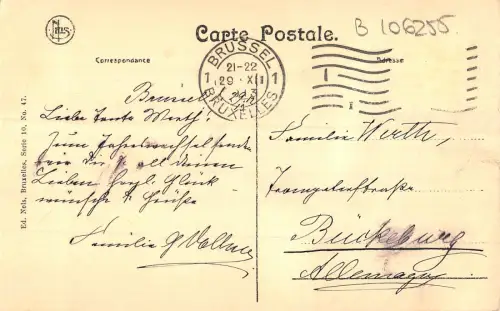 NELS
Carte Postale.
B 106255.
Correspondance
Adresse
BRUSSEL
21-22
1 29 · XII 1
BRUXELLES
Brüssel
Liebe Tante Werth!
Zum Jahreswechsel senden
wir Dir & all deinen
Lieben herzl. Glück-
wünsche & Grüße
Familie G Vollmer
Familie Werth,
Trompeterstraße
Bückeburg
Allemagne
Ed. Nels, Bruxelles, Serie 10, No. 47.